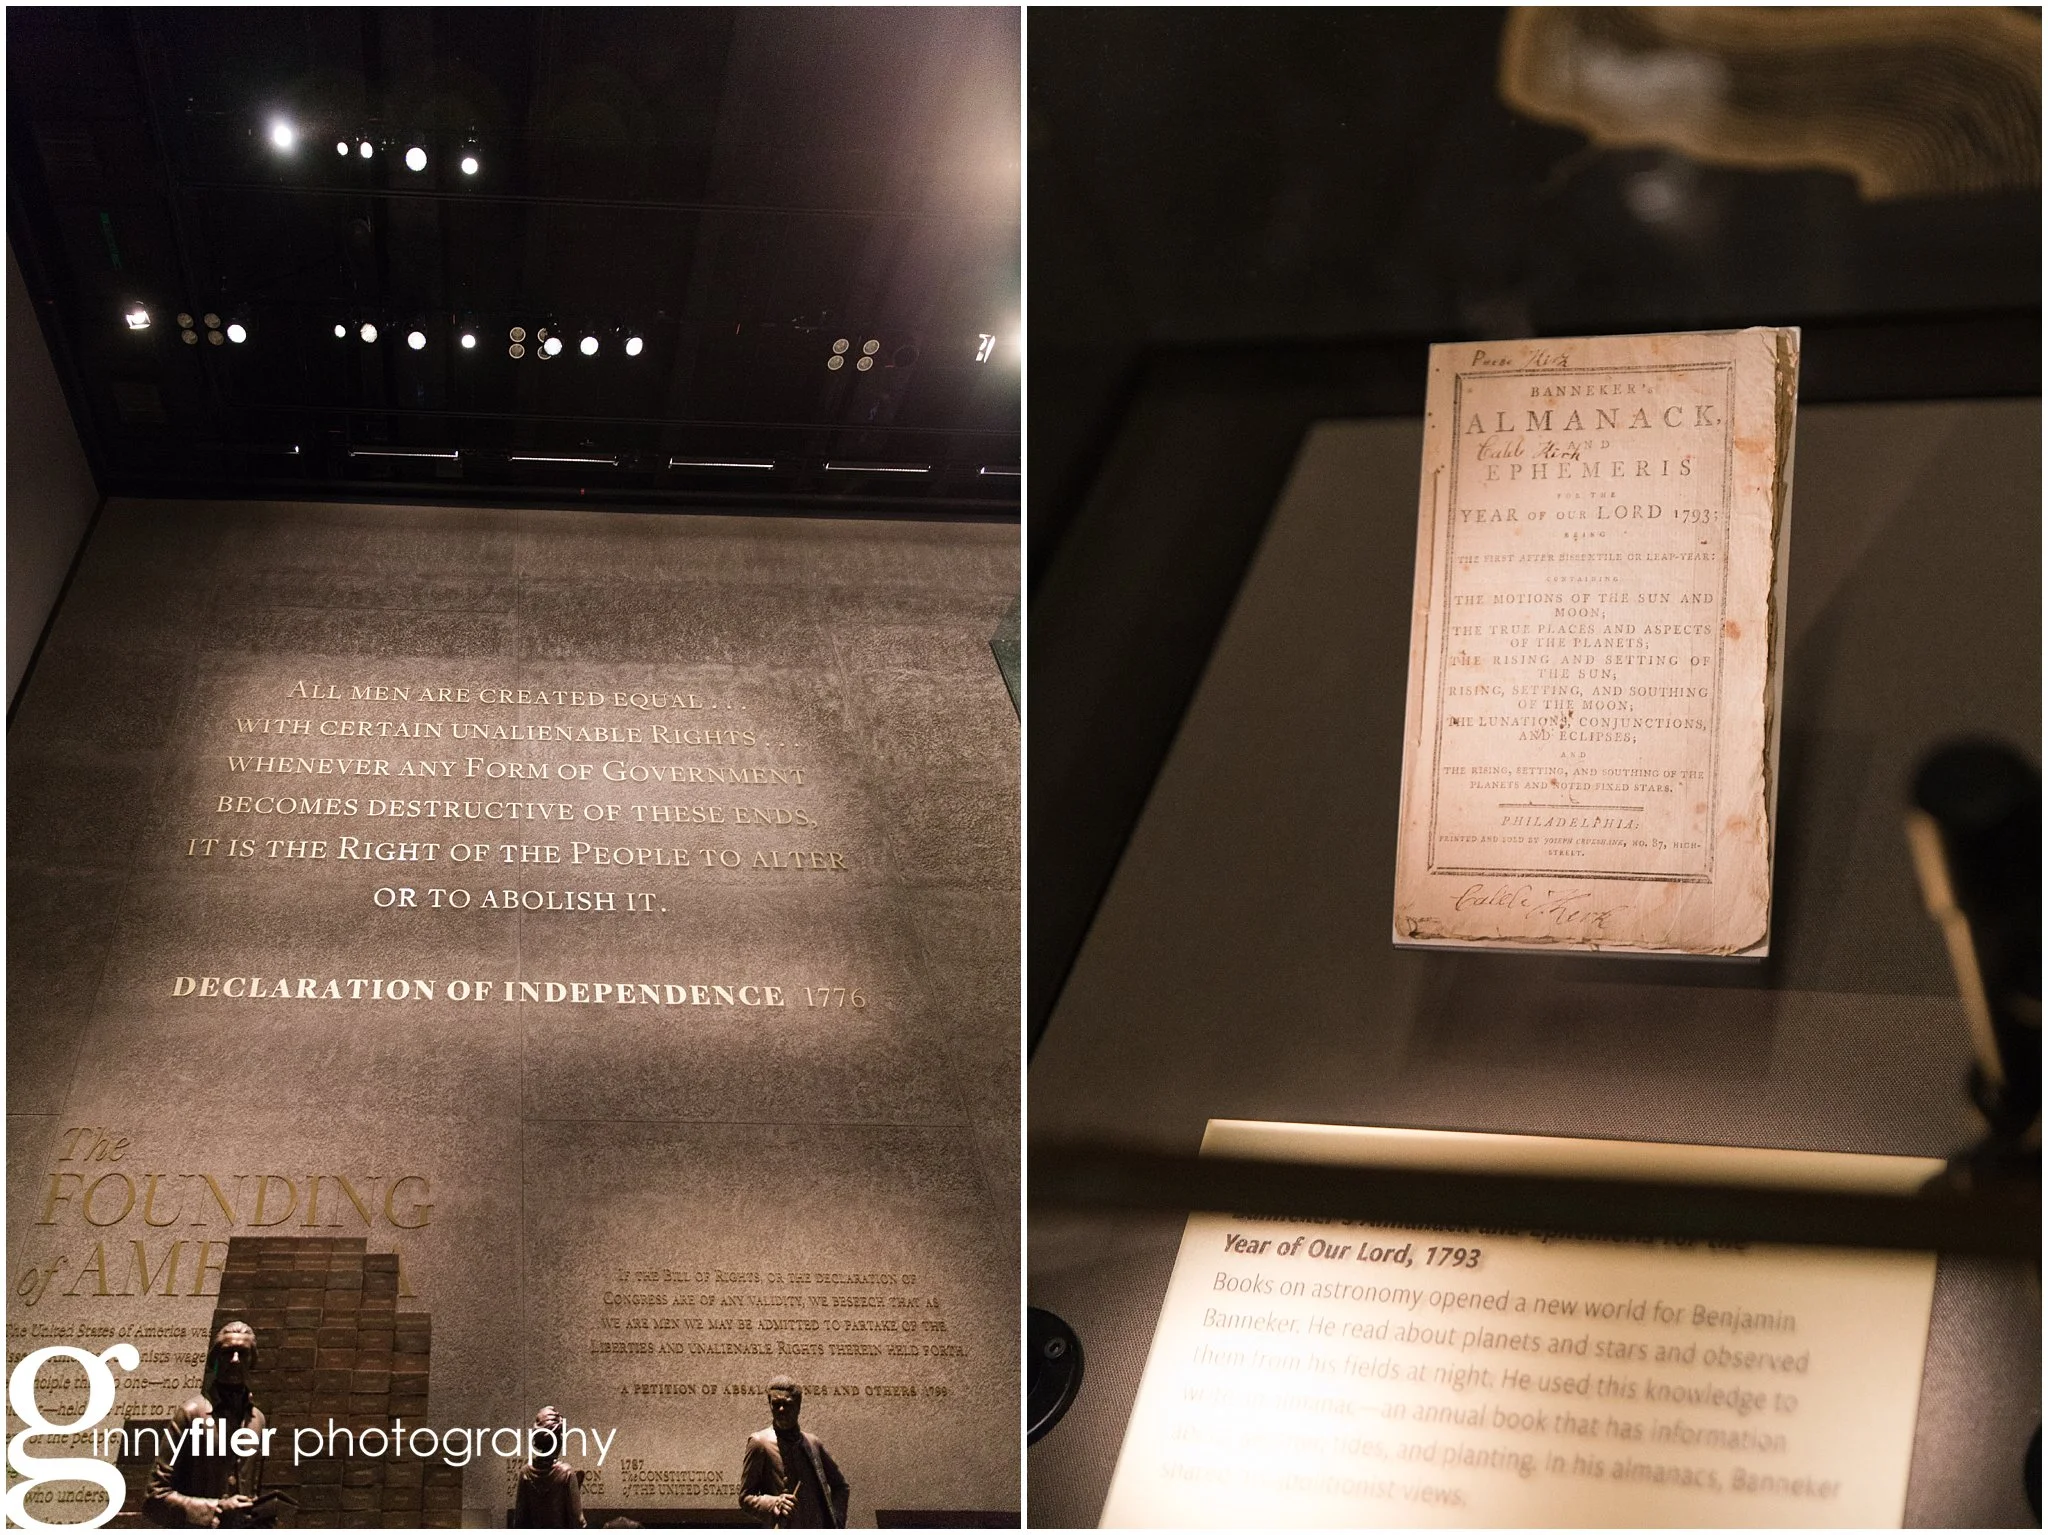 ALL MEN ARE CREATED EQUAL . . .
WITH CERTAIN UNALIENABLE RIGHTS . . .
WHENEVER ANY FORM OF GOVERNMENT
BECOMES DESTRUCTIVE OF THESE ENDS,
IT IS THE RIGHT OF THE PEOPLE TO ALTER
OR TO ABOLISH IT.
DECLARATION OF INDEPENDENCE 1776
The
FOUNDING
of AM
The United States of America was
IF THE BILL OF RIGHTS, OR THE DECLARATION OF
CONGRESS ARE OF ANY VALIDITY, WE BESEECH THAT AS
WE ARE MEN WE MAY BE ADMITTED TO PARTAKE OF THE
LIBERTIES AND UNALIENABLE RIGHTS THEREIN HELD FORTH.
A PETITION OF AND OTHERS 1799
one—no
right to
of the people
who
1787
The CONSTITUTION
of THE UNITED STATES
ginnyfiler photography
Kirk
BANNEKER'S
ALMANACK,
AND
Caleb Kirk
EPHEMERIS
FOR THE
YEAR OF OUR LORD 1793;
BEING
THE FIRST AFTER BISSEXTILE OR LEAP-YEAR:
CONTAINING
THE MOTIONS OF THE SUN AND
MOON;
THE TRUE PLACES AND ASPECTS
OF THE PLANETS;
THE RISING AND SETTING OF
THE SUN;
RISING, SETTING, AND SOUTHING
OF THE MOON;
THE LUNATIONS, CONJUNCTIONS,
AND ECLIPSES;
AND
THE RISING, SETTING, AND SOUTHING OF THE
PLANETS AND NOTED FIXED STARS.
PHILADELPHIA:
PRINTED AND SOLD BY JOSEPH CRUKSHANK, NO. 87, HIGH-
STREET.
Caleb Kirk
Banneker's Almanack and Ephemeris for the
Year of Our Lord, 1793
Books on astronomy opened a new world for Benjamin
Banneker. He read about planets and stars and observed
them from his fields at night. He used this knowledge to
write an almanac—an annual book that has information
tides, and planting. In his almanacs, Banneker
views.